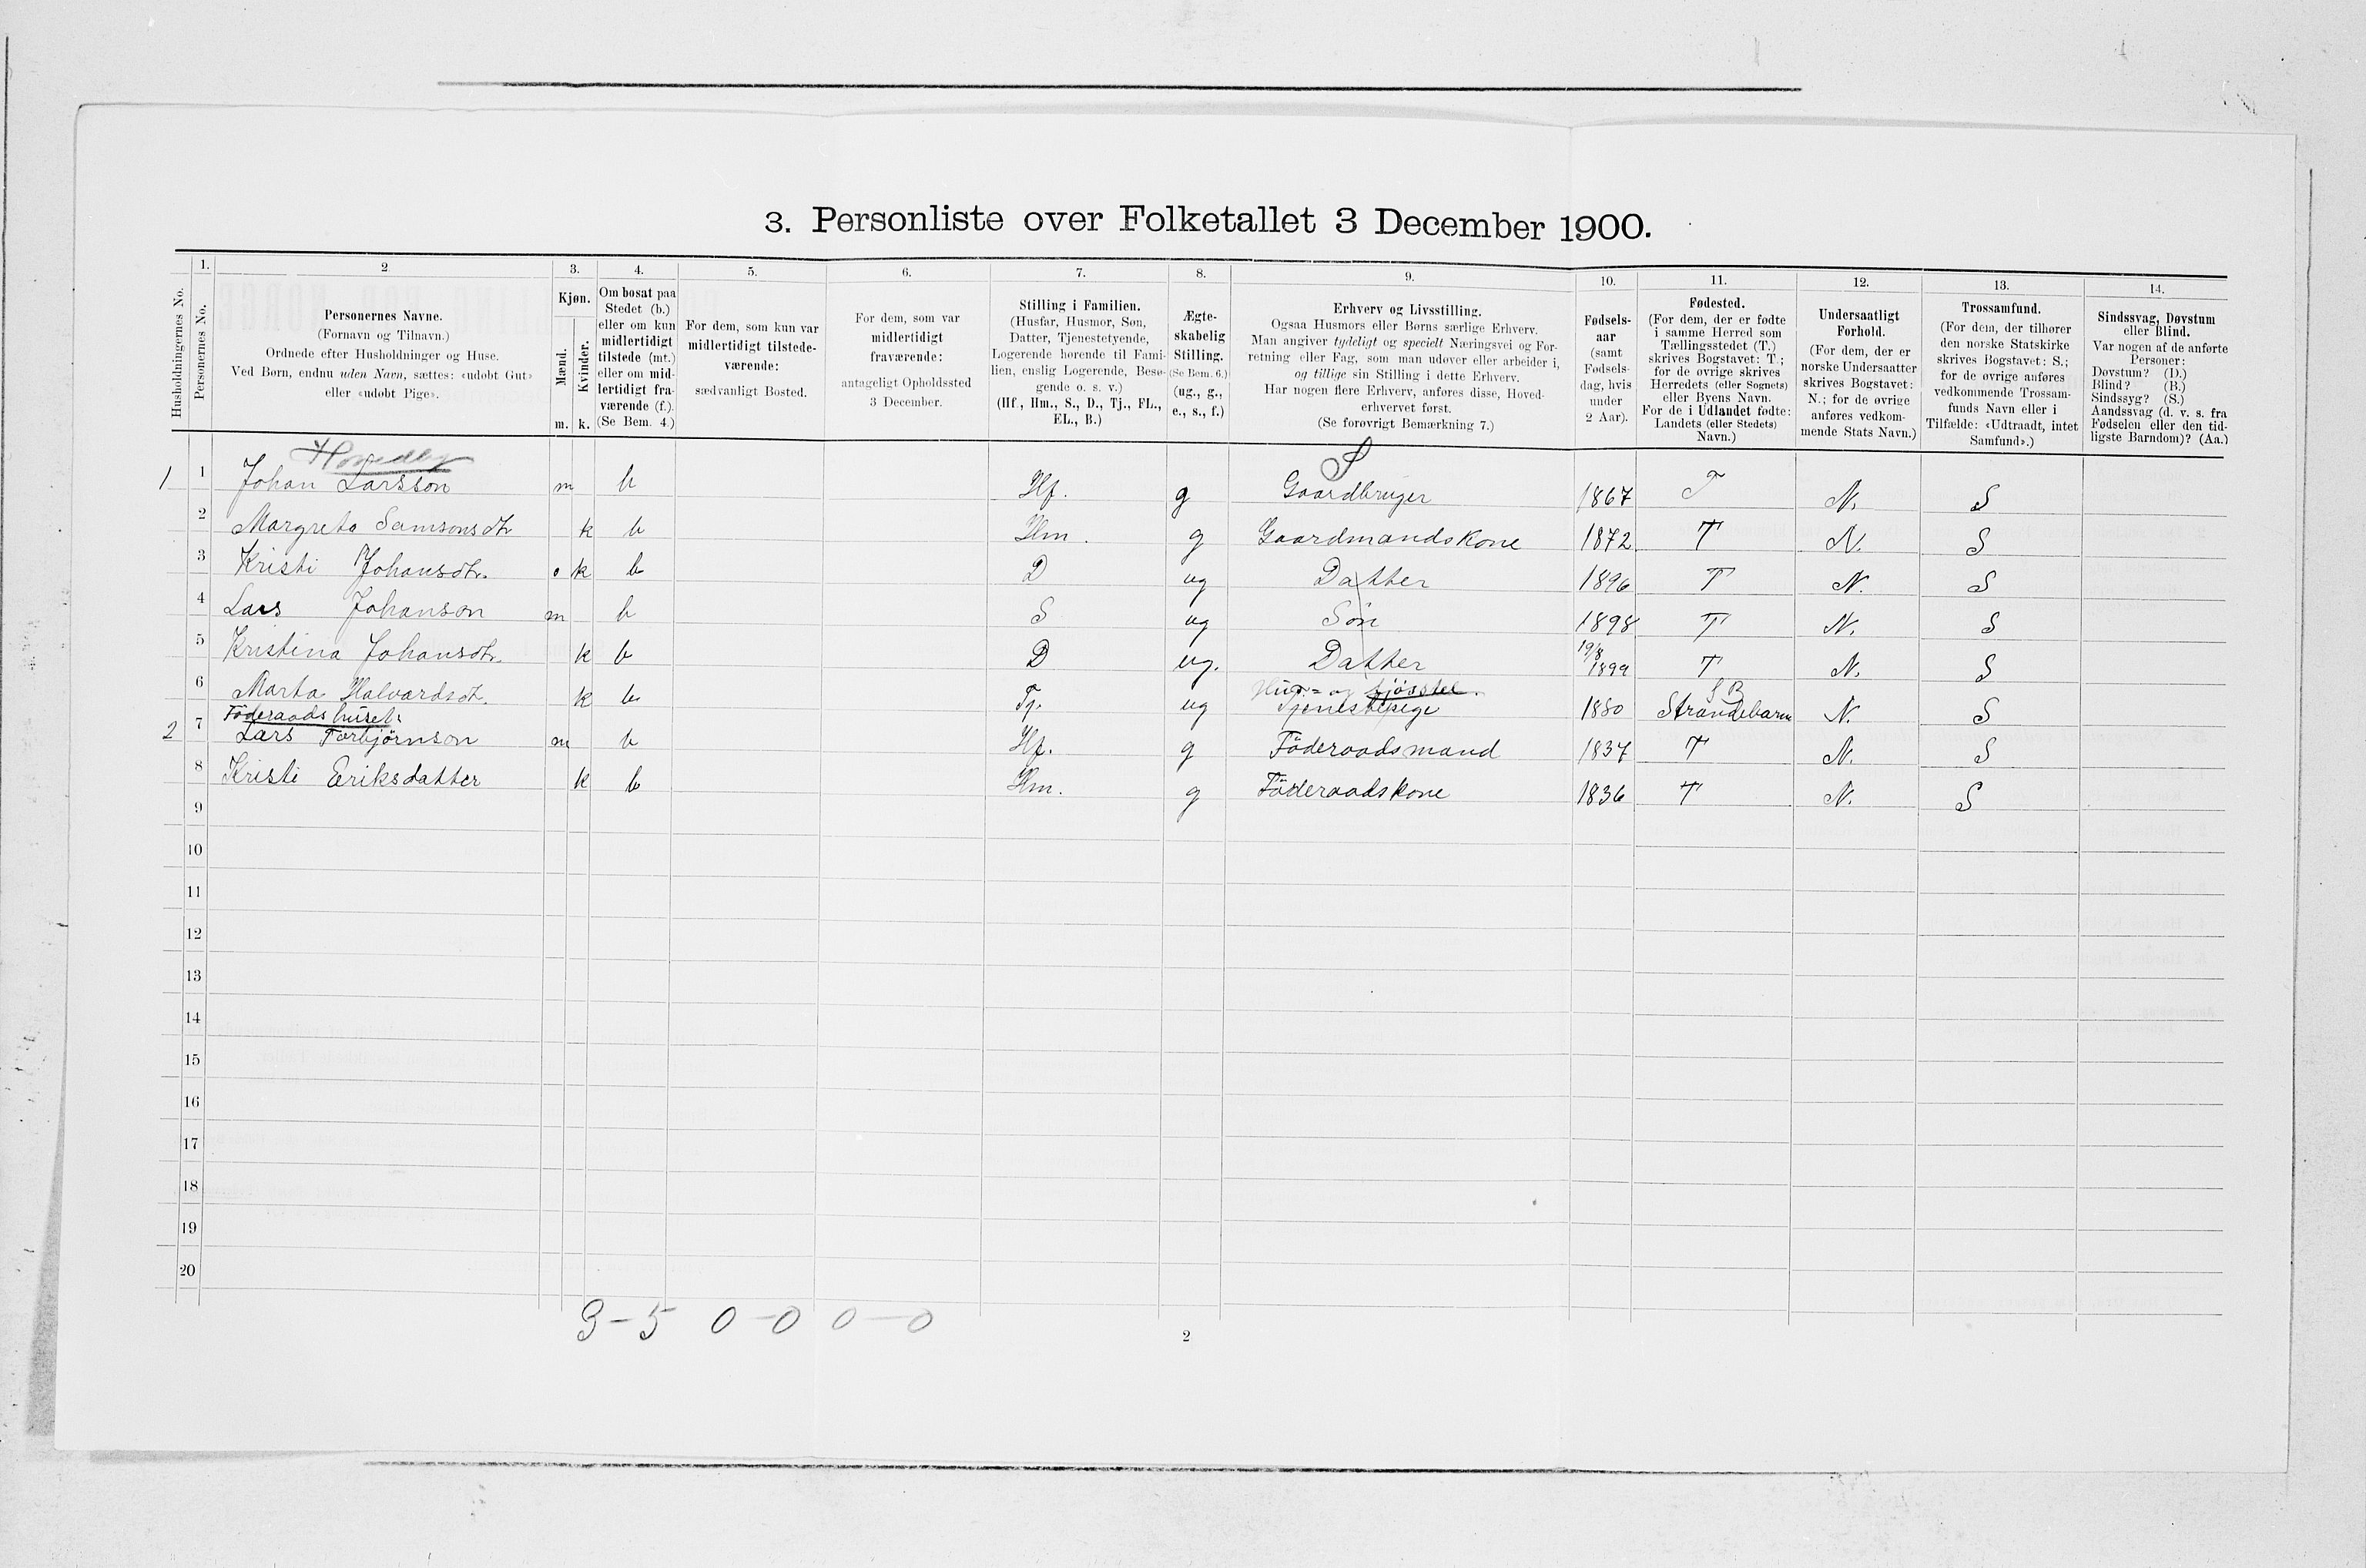 3. Personliste over Folketallet 3 December 1900.
Husholdningernes No.
1. Personernes No.
2
Personernes Navne.
(Fornavn og Tilnavn.)
Ordnede efter Husholdninger og Huse.
Ved Børn, endnu uden Navn, sættes: «udøbt Gut»
eller «udøbt Pige».
3.
Kjøn.
Mænd.
Kvinder.
m. k.
4.
Om bosat paa
Stedet (b.)
eller om kun
midlertidigt
tilstede (mt.)
eller om mid-
lertidigt fra-
værende (f.).
(Se Bem. 4.)
5.
For dem, som kun var
midlertidigt tilstede-
værende:
sædvanligt Bosted.
6.
For dem, som var
midlertidigt
fraværende:
antageligt Opholdssted
3 December.
7.
Stilling i Familien.
(Husfar, Husmor, Søn,
Datter, Tjenestetyende,
Logerende hørende til Fami-
lien, enslig Logerende, Besø-
gende o. s. v.)
(Hf., Hm., S., D., Tj., FL.,
EL., B.)
8.
Ægte-
skabelig
Stilling.
(Se Bem. 6.)
(ug., g.,
e., s., f.)
9.
Erhverv og Livsstilling.
Ogsaa Husmors eller Børns særlige Erhverv.
Man angiver tydeligt og specielt Næringsvei og For-
retning eller Fag, som man udøver eller arbeider i,
og tillige sin Stilling i dette Erhverv.
Har nogen flere Erhverv, anføres disse, Hoved-
erhvervet først.
(Se forøvrigt Bemærkning 7.)
10.
Fødsels-
aar
(samt
Fødsels-
dag, hvis
under
2 Aar).
11.
Fødested.
(For dem, der er fødte
i samme Herred som
Tællingsstedet (T.)
skrives Bogstavet: T.;
for de øvrige skrives
Herredets (eller Sognets)
eller Byens Navn.
For de i Udlandet fødte:
Landets (eller Stedets)
Navn.)
12.
Undersaatligt
Forhold.
(For dem, der er
norske Undersaatter
skrives Bogstavet:
N.; for de øvrige
anføres vedkom-
mende Stats Navn.)
13.
Trossamfund.
(For dem, der tilhører
den norske Statskirke
skrives Bogstavet: S.;
for de øvrige anføres
vedkommende Trossam-
funds Navn eller i
Tilfælde: «Udtraadt, intet
Samfund».)
14.
Sindssvag, Døvstum
eller Blind.
Var nogen af de anførte
Personer:
Døvstum? (D.)
Blind? (B.)
Sindssyg? (S.)
Aandssvag (d. v. s. fra
Fødselen eller den tid-
ligste Barndom)? (Aa.)
S
1 1 Johan Larsson m b Hf. g Gaardbruger 1867 T N. S
2 Margreta Samsonsdt k b Hm. g Gaardmandskone 1872 T N. S
3 Kristi Johansdtr. k b D ug Datter 1896 T N. S
4 Lars Johanson m b S ug Søn 1898 T N. S
5 Kristina Johansdtr. k b D ug. Datter 19/8 1899 T N. S
S B
6 Marta Halvardsdt. k b Tj. ug Tjenestepige 1880 Strandebarm N. S
Föderaadshuset:
2 7 Lars Torbjørnson m b Hf. g Föderaadsmand 1837 T N. S
8 Kristi Eeriksdatter k b Hm. g Föderaadskone 1836 T N. S
9
10
11
12
13
14
15
16
17
18
19
20
3-5 0-0 0-0
2